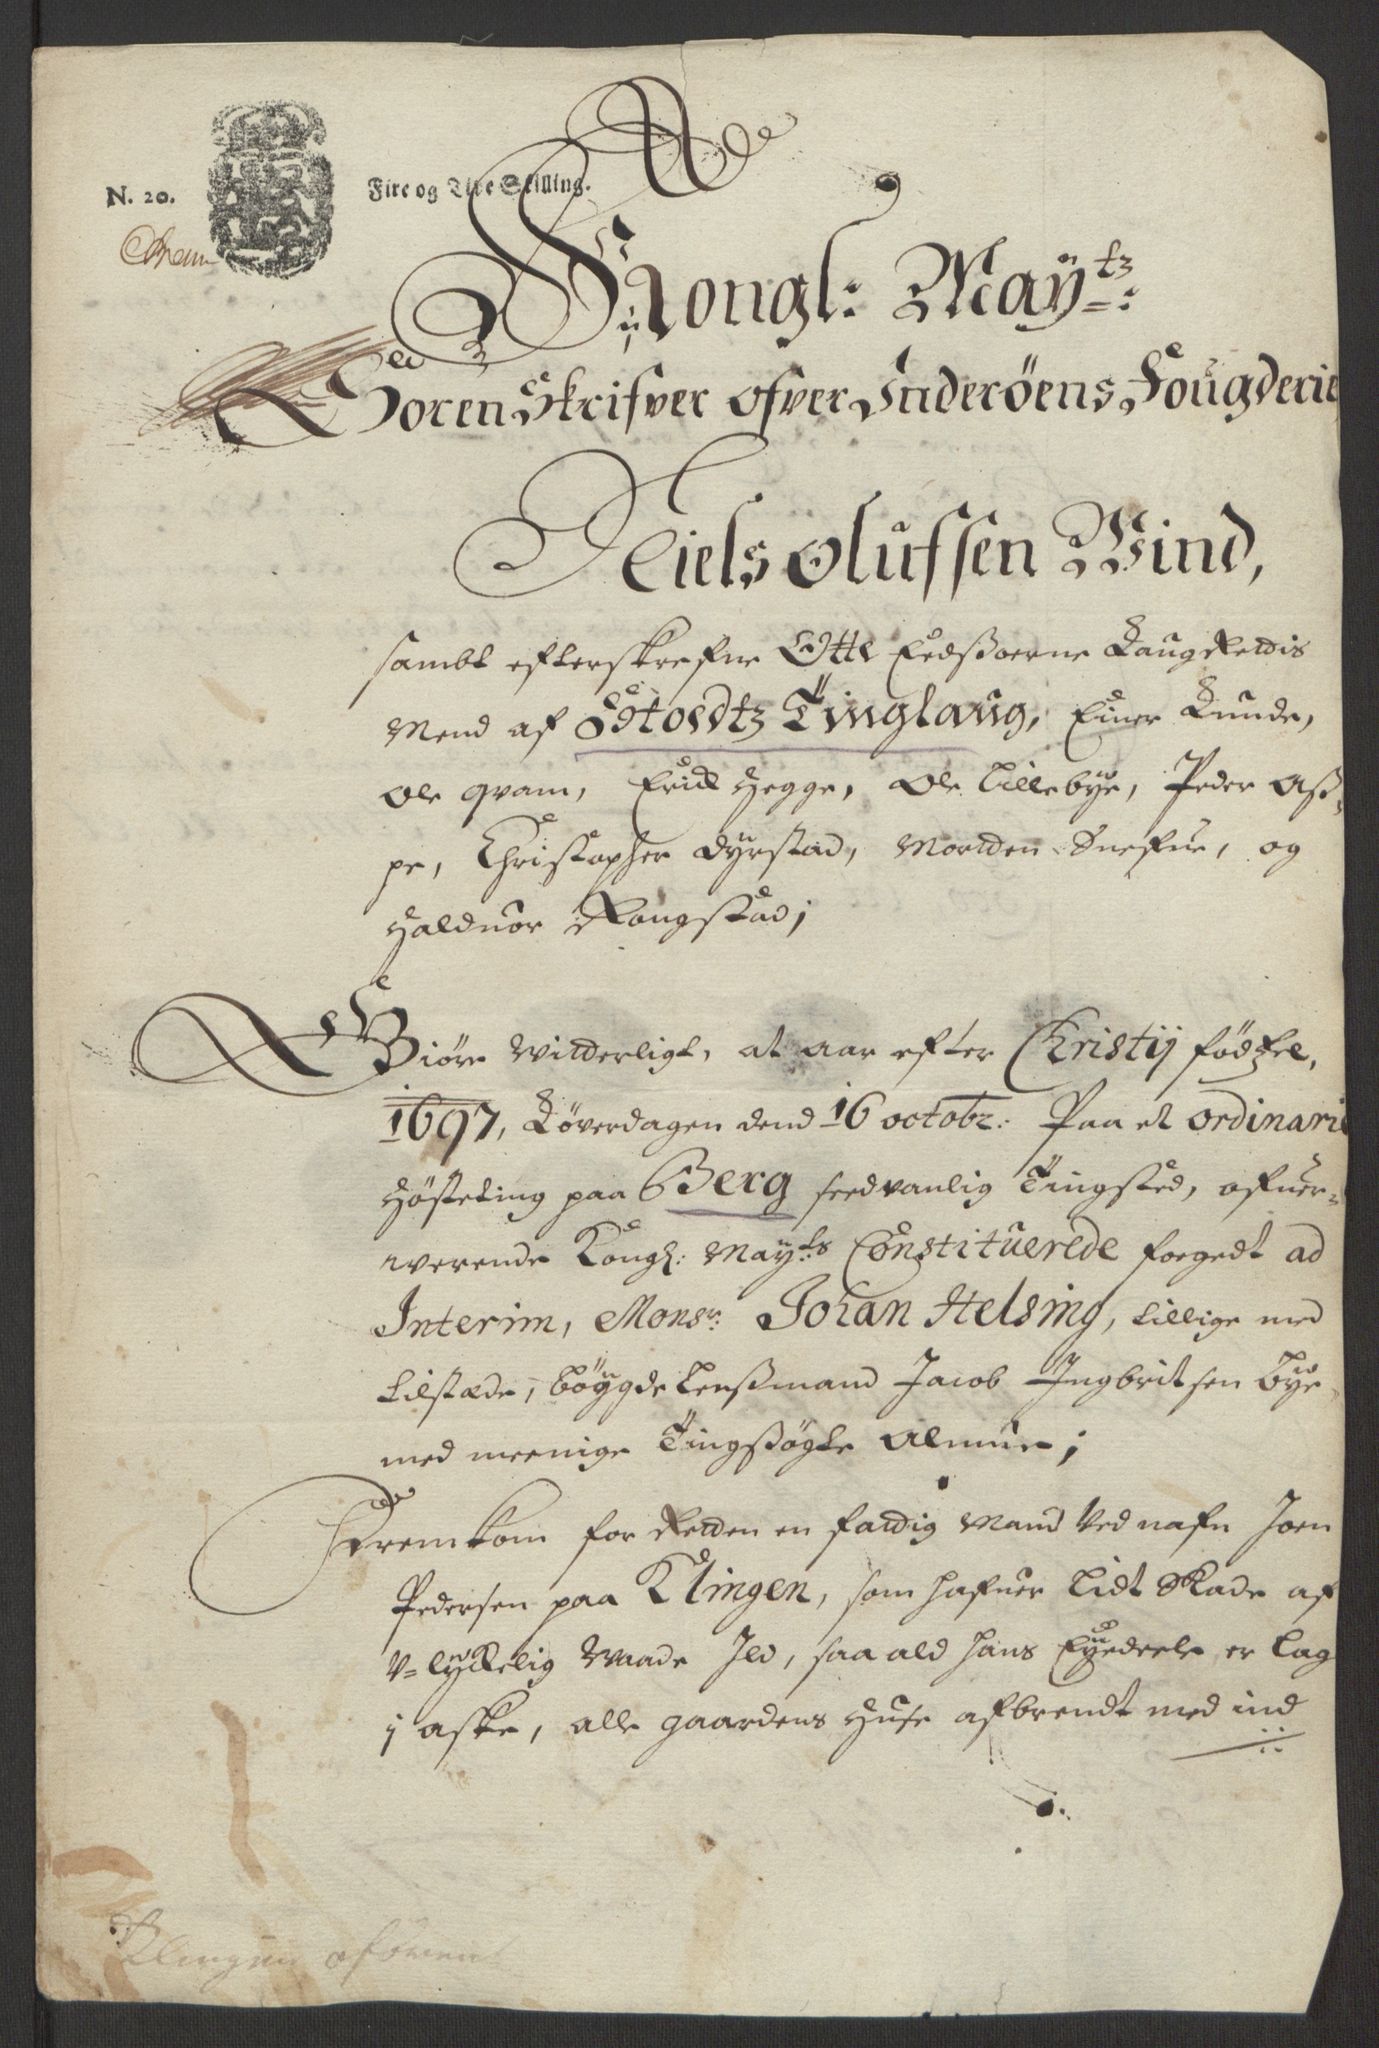 N. 20.
Fire og Tive Skilling.
Kongl: Maÿtz:
Soren Skrifver ofver Inderöens Fougderie
Niels Olufsen Wind,
sambt efterskrefne Otte Eedsvorne Laug Rettis
Mend af Stordtz Tinglaug, Einer Lunde,
Ole Qvam, Erick Hegge, Ole Lillebye, Peder Asß-
pe, Christopher Dyrstad, Mortten Snefue, og
Halduor Rongstad;
Giöre Witterligt, at aar efter Christij födtzel,
1697, Löverdagen dend 16 octobr: Paa et ordinarie
Hösteting paa Berg sedvanlig Tingsted, ofuer-
werende Kongl: Maÿts Constituerede foegedt ad
Interim, Monsr: Johan Helsing, tillige med
tilstæde, böygde Lensmand Jacob Ingbritsen Bye
med meenige Tingsögte Almue;
Fremkom for Retten en fattig Mand Ved nafn Joen
Pedersen paa Klingen, som hafuer Lidt Skade af
V=lÿckelig Waade Ild, saa ald hans Eÿedeele er lag
i aske, alle gaardens Huse afbrendt med ind
Klingen